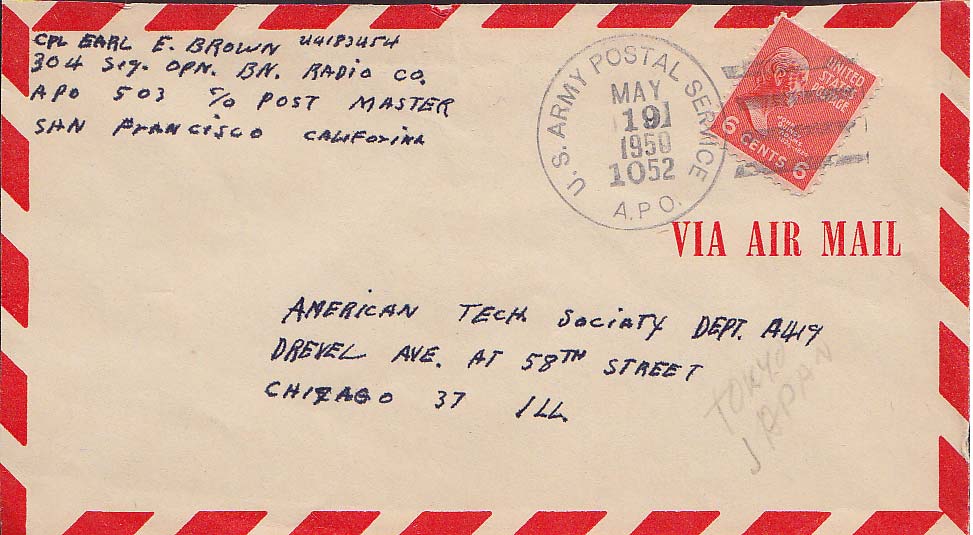 CPL EARL E. BROWN U4183454
304 Sig. OPN. BN. RADIO CO.
APO 503 C/O POST MASTER
SAN FRANCISCO CALIFORINA
U.S. ARMY POSTAL SERVICE
MAY
19
1950
1052
A.P.O.
UNITED
STATES
POSTAGE
6 CENTS 6
VIA AIR MAIL
AMERICAN TECH. SOCIATY DEPT. A419
DREVEL AVE. AT 58TH STREET
CHIZAGO 37 ILL.
TOKYO
JAPAN